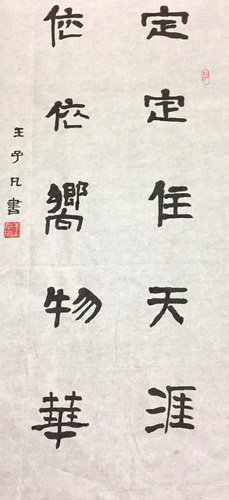 定定住天涯
依依嚮物華
王予凡書